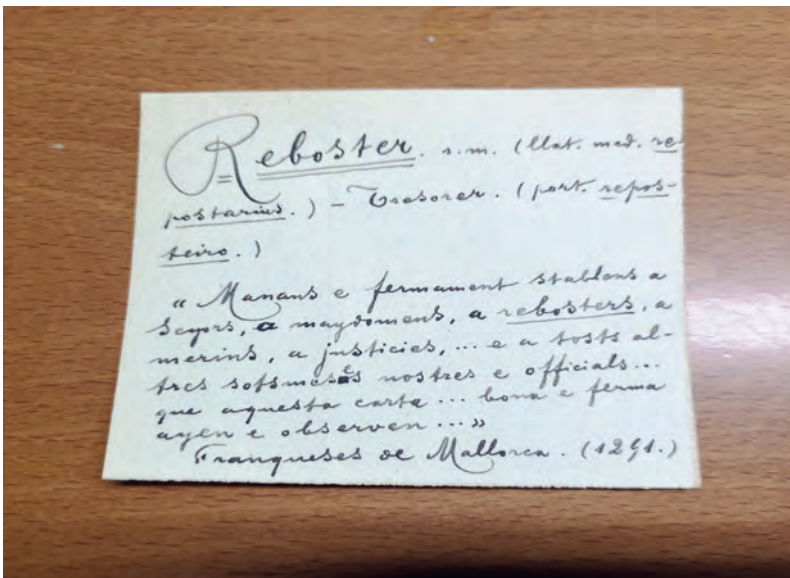 Reboster. s.m. (llat. med. re-
postarius.) – Tresorer. (port. repos-
teiro.)
« Manans e fermament stablens a
seyors, a maydomens, a rebosters, a
merins, a justicies, ... e a tosts al-
tres sotsmesés nostres e officials...
que aquesta carta ... bona e ferma
ayen e observen ... »
Franqueses de Mallorca. (1291.)